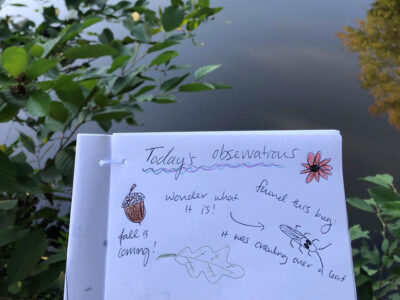 Today's observations
wonder what
it is!
found this bug:
fall is
coming!
it was crawling over a leaf